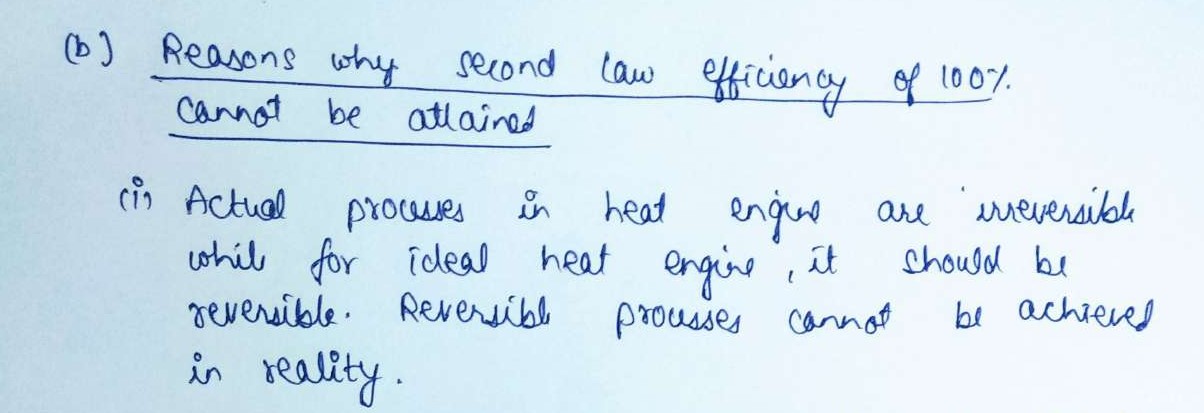 (b) Reasons why second law efficiency of 100%
cannot be attained
(i) Actual processes in heat engine are irreversible
while for ideal heat engine, it should be
reversible. Reversible processes cannot be achieved
in reality.